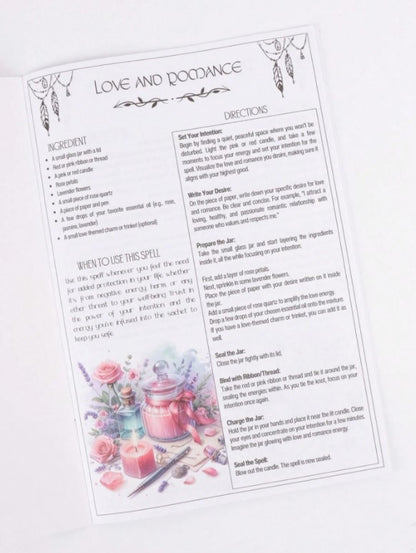 LOVE AND ROMANCE
INGREDIENT
• A small glass jar with a lid
• Red or pink ribbon or thread
• A pink or red candle
• Rose petals
• Lavender flowers
• A small piece of rose quartz
• A piece of paper and pen
• A few drops of your favorite essential oil (e.g., rose,
jasmine, lavender)
• A small love-themed charm or trinket (optional)
WHEN TO USE THIS SPELL
Use this spell whenever you feel the need
for added protection in your life, whether
it's from negative energy, harm, or any
other threat to your well-being. Trust in
the power of your intention and the
energy you've infused into the sachet to
keep you safe.
DIRECTIONS
Set Your Intention:
Begin by finding a quiet, peaceful space where you won't be
disturbed. Light the pink or red candle, and take a few
moments to focus your energy and set your intention for the
spell. Visualize the love and romance you desire, making sure it
aligns with your highest good.
Write Your Desire:
On the piece of paper, write down your specific desire for love
and romance. Be clear and concise. For example, "I attract a
loving, healthy, and passionate romantic relationship with
someone who values and respects me."
Prepare the Jar:
Take the small glass jar and start layering the ingredients
inside it, all the while focusing on your intention.
First, add a layer of rose petals.
Next, sprinkle in some lavender flowers.
Place the piece of paper with your desire written on it inside
the jar.
Add a small piece of rose quartz to amplify the love energy.
Drop a few drops of your chosen essential oil onto the mixture.
If you have a love-themed charm or trinket, you can add it as
well.
Seal the Jar:
Close the jar tightly with its lid.
Bind with Ribbon/Thread:
Take the red or pink ribbon or thread and tie it around the jar,
sealing the energies within. As you tie the knot, focus on your
intention once again.
Charge the Jar:
Hold the jar in your hands and place it near the lit candle. Close
your eyes and concentrate on your intention for a few minutes.
Imagine the jar glowing with love and romance energy.
Seal the Spell:
Blow out the candle. The spell is now sealed.